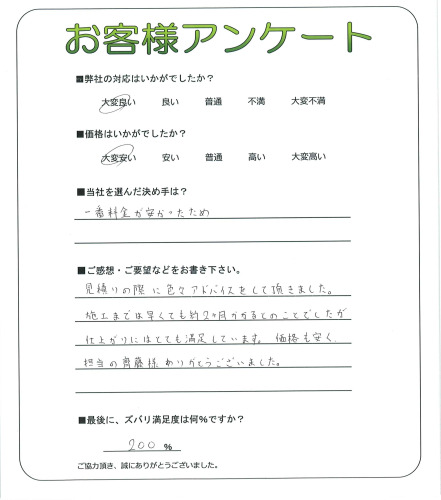 お客様アンケート
■弊社の対応はいかがでしたか？
大変良い 良い 普通 不満 大変不満
■価格はいかがでしたか？
大変安い 安い 普通 高い 大変高い
■当社を選んだ決め手は？
一番料金が安かったため
■ご感想・ご要望などをお書き下さい。
見積りの際に色々アドバイスをして頂きました。
施工までは早くても約2ヶ月かかるとのことでしたが
仕上がりにはとても満足しています。価格も安く、
担当の齊藤様ありがとうございました。
■最後に、ズバリ満足度は何%ですか？
200 %
ご協力頂き、誠にありがとうございました。